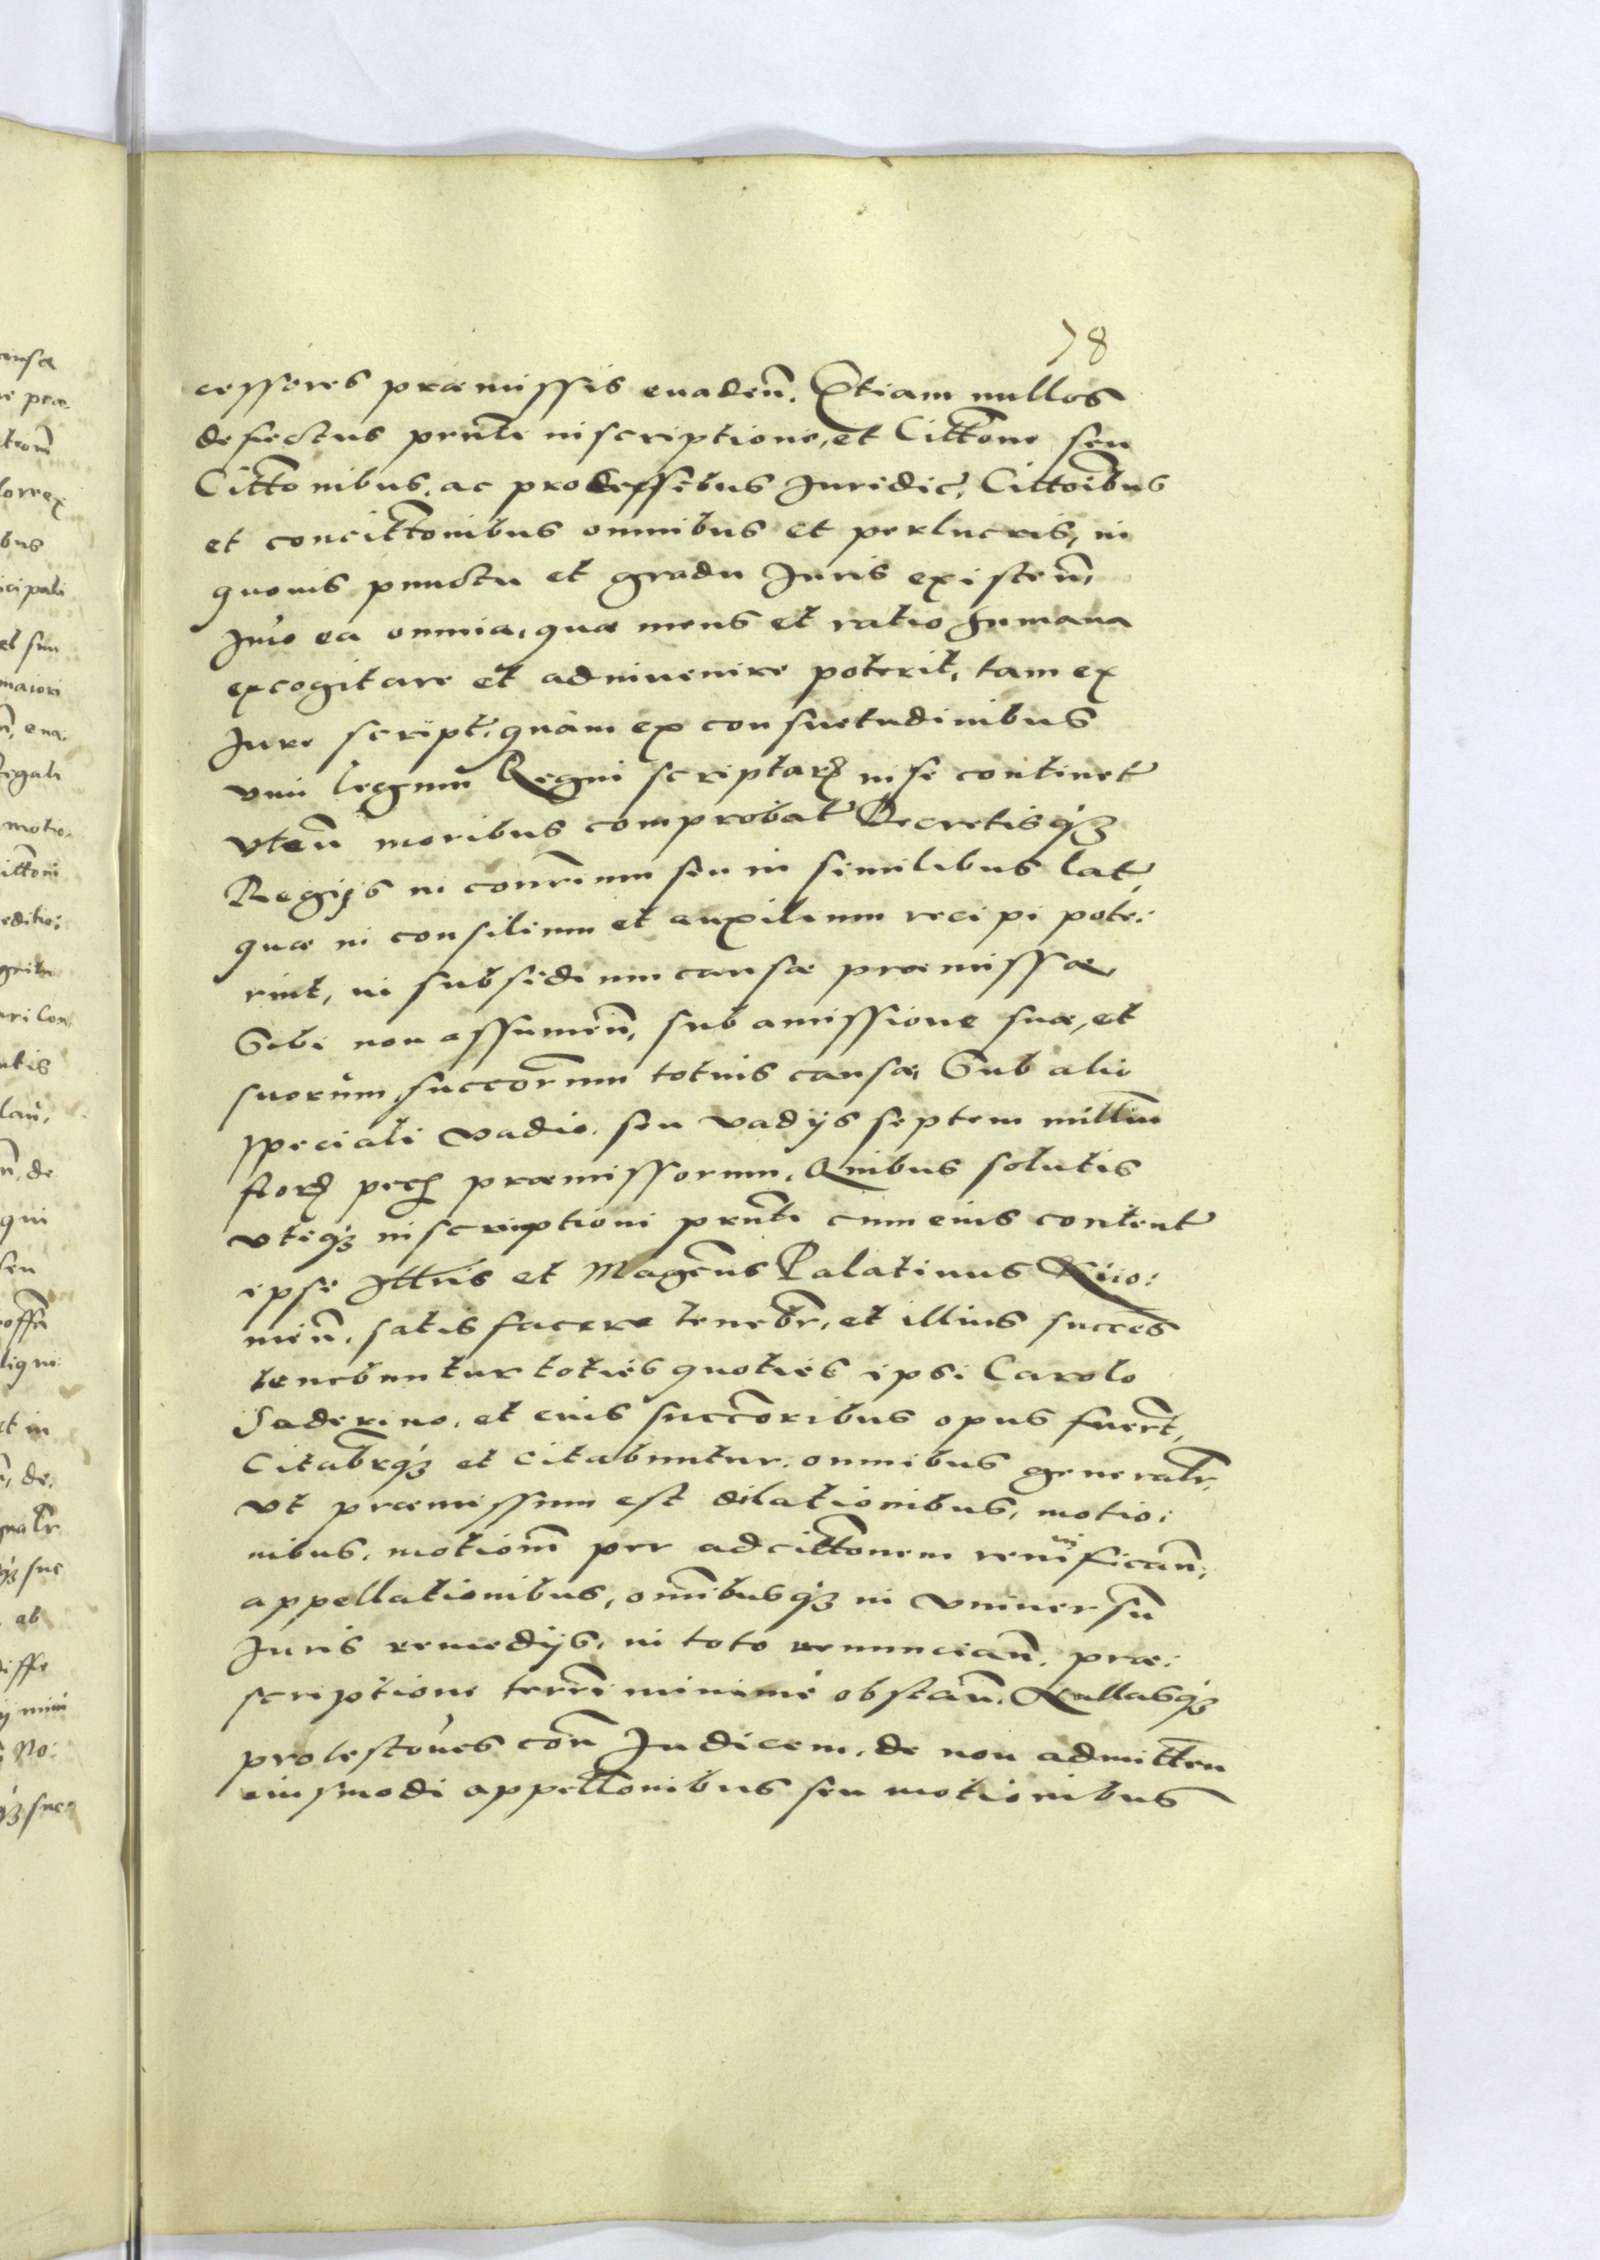 78
cessores præmissis euadeñ. Etiam nullos
defectus prñti inscriptione, et Citt̃one seu
Citt̃onibus, ac processibus Juridic̃, Cittõibus
et concitt̃onibus omnibus et perlucris, in
quouis punctu et gradu Juris existeñ,
Jmò ea omnia, quæ mens et ratio humana
excogitare et adinuenire poterit, tam ex
Jure script̃, quàm ex consuetudinibus
vim legum Regni scriptar̃ in se continet̃
vteñ moribus comprobat̃ Decretisq́ꝫ
Regijs in conr̃ium seu in similibus lat̃,
quæ in consilium et auxilium recipi pote:
rint, in subsidium causæ præmissæ,
Sibi non assumeñ, sub amissione suæ, et
suorum succor̃um totius causæ, Sub alio
speciali vadio, seu vadijs septem milliũ
flor̃ pech̃ præmissorum. Quibus solutis
vteq́ꝫ inscriptioni prñti cum eius content̃
ipse Jlltris et Magcũs Palatinus Kiio:
uieñ. satisfacere teneb̃r, et illius succes̃
tenebuntur toties quoties ipsi Carolo
Saderino, et eius succõribus opus fuerĩt,
Citab̃rq́ꝫ et citabuntur, omnibus general̃r,
vt præmissum est dilationibus, motio:
nibus, motionũ per adcitt̃onem reuificañ,
appellationibus, omĩbusq́ꝫ in vniuersũ
Juris remedijs, in toto renunciañ. præ:
scriptione terr̃i minimè obstañ. Nullasq́ꝫ
protestões coñ Judicem, de non admitteñ
eiusmodi appell̃onibus seu motionibus